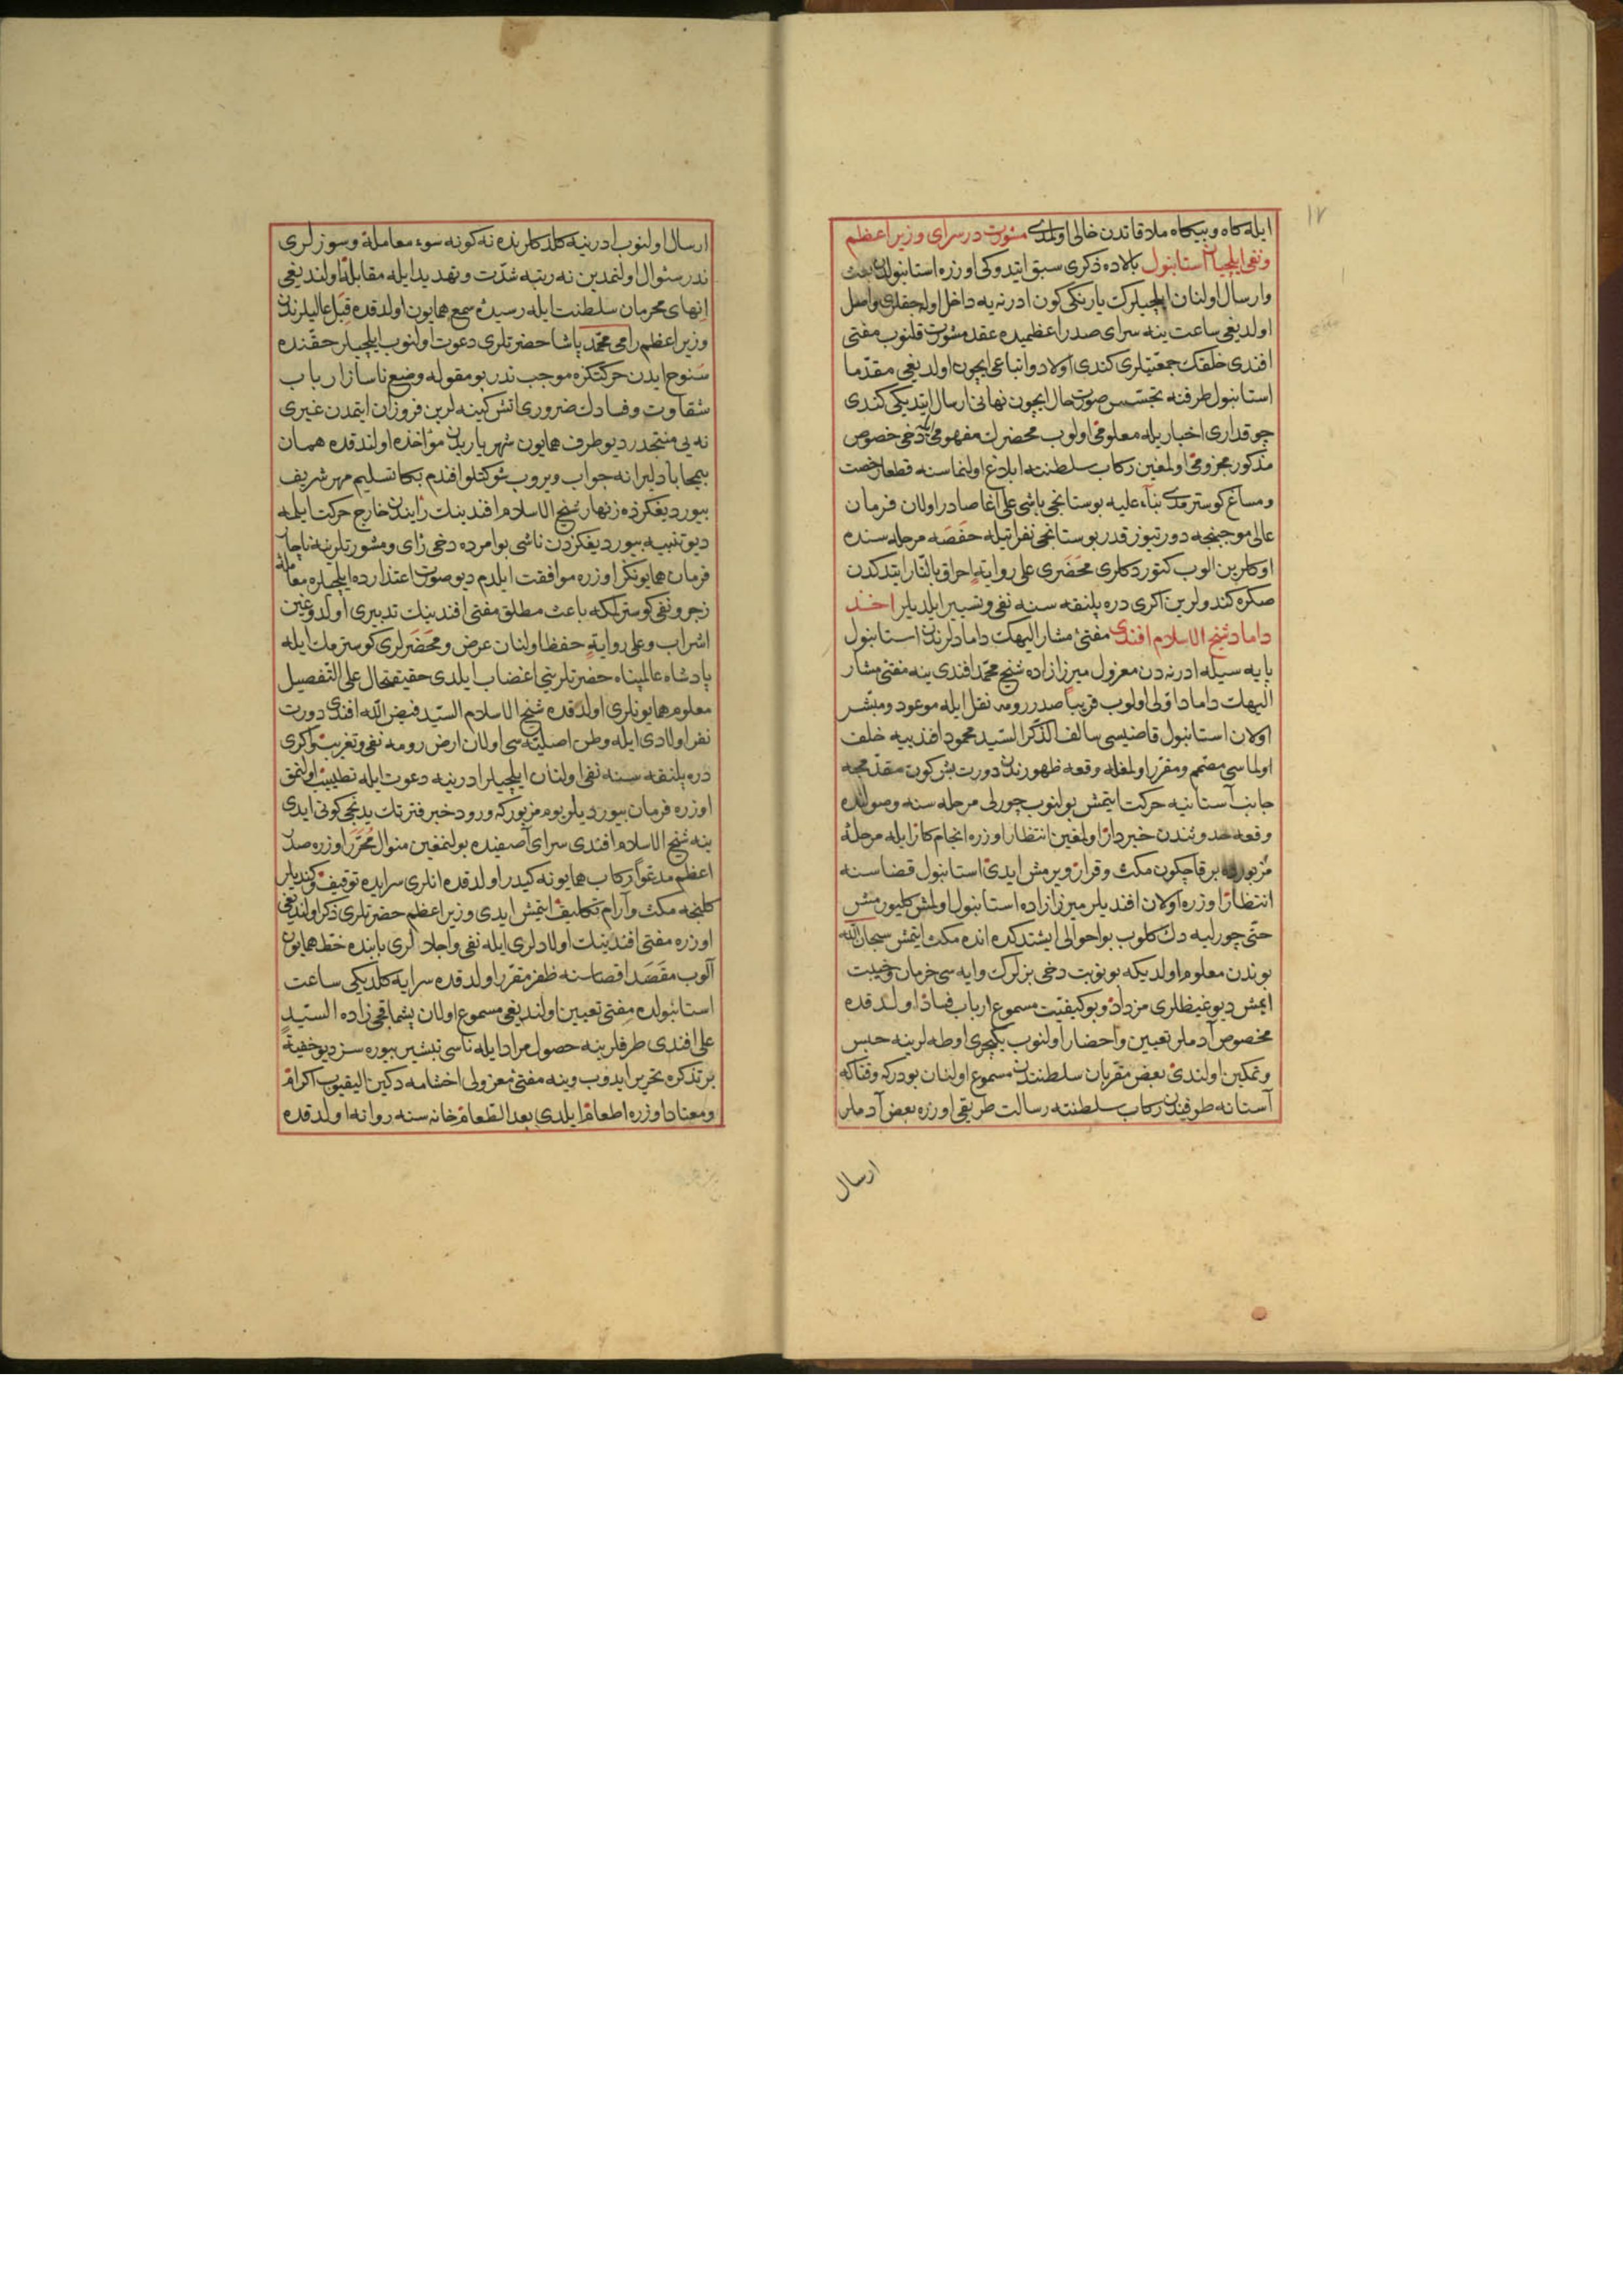 ١٧
ايله كاه و بيكاه ملاقاتدن خالى اولمدى مشورت در سراى وزير اعظم
ونفى ايلچيان استانبول بالاده ذكرى سبق ايتدوكى اوزره استانبولدن بعث
وارسال اولنان ايلچيلرك يارنكى كون ادرنه يه داخل اوله جقلرى واصل
اولديغى ساعت ينه سراى صدر اعظميده عقد مشورت قلنوب مفتى
افندى خلقك جمعيتلرى كندى اولاد واتباعى ايچون اولديغى مقدما
استانبول طرفنه تجسس صورت حال ايچون نهانى ارسال ايتديكى كندى
چوقدارى اخباريله معلومى اولوب محضرك مفهومى دخى خصوص
مذكور مجزومى اولمغين ركاب سلطنته ابلاغ اولنماسنه قطعا رخصت
ومساغ كوسترمدى بناء عليه بوستانجى باشى على اغا صادر اولان فرمان
عالى موجبنجه درتيوز قدر بوستانجى نفراتيله حفصه مرحله سنده
اوكلرين الوب كتوردكلرى محضرى على رواية احراق بالنار ايتدكدن
صكره كندولرين اكرى دره پلنقه سنه نفى وتسيير ايلديلر اخذ
داماد شيخ الاسلام افندى مفتئ مشار اليهك دامادلرندن استانبول
پايه سيله ادرنه دن معزول ميرزا زاده شيخ محمد افندى ينه مفتئ مشار
اليهك داماد اولى اولوب قريبا صدر رومه نقل ايله موعود ومبشر
اولان استانبول قاضيسى سالف الذكر السيد محمود افندييه خلف
اولماسى مصمم ومقرر اولمغله وقعه ظهورندن دورت بش كون مقدمجه
جانب آستانيه حركت ايتمش بولنوب چورلى مرحله سنه وصولنده
وقعه حدوثندن خبردار اولمغين انتظار اوزره انجام كار ايله مرحلهٔ
مزبورده برقاچكون مكث وقرار ويرمش ايدى استانبول قضاسنه
انتظار اوزره اولان افنديلر ميرزا زاده استانبول اولمش كليورمش
حتى چورليه دك كلوب بو احوالى ايشتدكده انده مكث ايتمش سبحان الله
بوندن معلوم اولديكه بو نوبت دخى بزلرك وايه سى خرمان وخيبت
ايمش ديو غيظلرى مزداد وبو كيفيت مسموع ارباب فساد اولدقده
مخصوص آدملر تعيين واحضار اولنوب يكيچرى اوطه لرينه حبس
وتمكين اولندى بعض مقربان سلطنتدن مسموع اولنان بودركه وقتاكه
آستانه طرفندن ركاب سلطنته رسالت طريقى اوزره بعض آدملر
ارسال
ارسال اولنوب ادرنيه كلدكلرنده نه كونه سوء معامله وسوزلرى
ندر سئوال اولنمدين نه رتبه شدت وتهديد ايله مقابله اولنديغى
انهاى محرمان سلطنت ايله رسيدهٔ سمع همايون اولدقده قبل عاليلرندن
وزير اعظم رامى محمد پاشا حضرتلرى دعوت اولنوب ايلچيلر حقنده
سنوح ايدن حركتكزه موجب ندر بو مقوله وضع ناساز ارباب
شقاوت وفسادك ضرورى آتش كينه لرين فروزان ايتمدن غيرى
نه يى منتجدر ديو طرف همايون شهرياريدن مؤاخذه اولندقده همان
بيمحابا دليرانه جواب ويروب شوكتلو افندم بكا تسليم مهر شريف
بيورديغكزده زنهار شيخ الاسلام افندينك رأيندن خارج حركت ايلمه
ديو تنبيه بيورديغكزدن ناشى بو امرده دخى رأى ومشورتلرينه ناچار
فرمان همايونكز اوزره موافقت ايلدم ديو صورت اعتذارده ايلچيلره معامله
زجر ونفى كوسترلمكه باعث مطلق مفتى افندينك تدبيرى اولدوغين
اشراب وعلى رواية حفظ اولنان عرض ومحضرلرى كوسترمك ايله
پادشاه عالمپناه حضرتلرينى اغضاب ايلدى حقيقتحال على التفصيل
معلوم همايونلرى اولدقده شيخ الاسلام السيد فيض الله افندى دورت
نفر اولادى ايله وطن اصليه سى اولان ارض رومه نفى وتغريب واكرى
دره پلنقه سنه نفى اولنان ايلچيلر ادرنيه دعوت ايله تطييب اولنمق
اوزره فرمان بيورديلر يوم مزبوركه ورود خبر فترتك يدنجى كونى ايدى
ينه شيخ الاسلام افندى سراى آصفيده بولنمغين منوال محرر اوزره صدر
اعظم مدعوا ركاب همايونه كيدر اولدقده انلرى سرايده توقيف وكنديلر
كلنجه مكث وآرام تكليف ايتمش ايدى وزير اعظم حضرتلرى ذكر اولنديغى
اوزره مفتى افندينك اولادلرى ايله نفى واجلالرى بابنده خط همايون
آلوب مقصد اقصاسنه ظفر مقرر اولدقده سرايه كلديكى ساعت
استانبولده مفتى تعيين اولنديغى مسموع اولان پشماقجى زاده السيد
على افندى طرفلرينه حصول مراد ايله ناسى تبشير بيوره سز ديو خفية
بر تذكره تحرير ايدوب وينه مفتئ معزولى اختامه دكين اليقيوب اكرام
ومعتاد اوزره اطعام ايلدى بعد الطعام خانه سنه روانه اولدقده